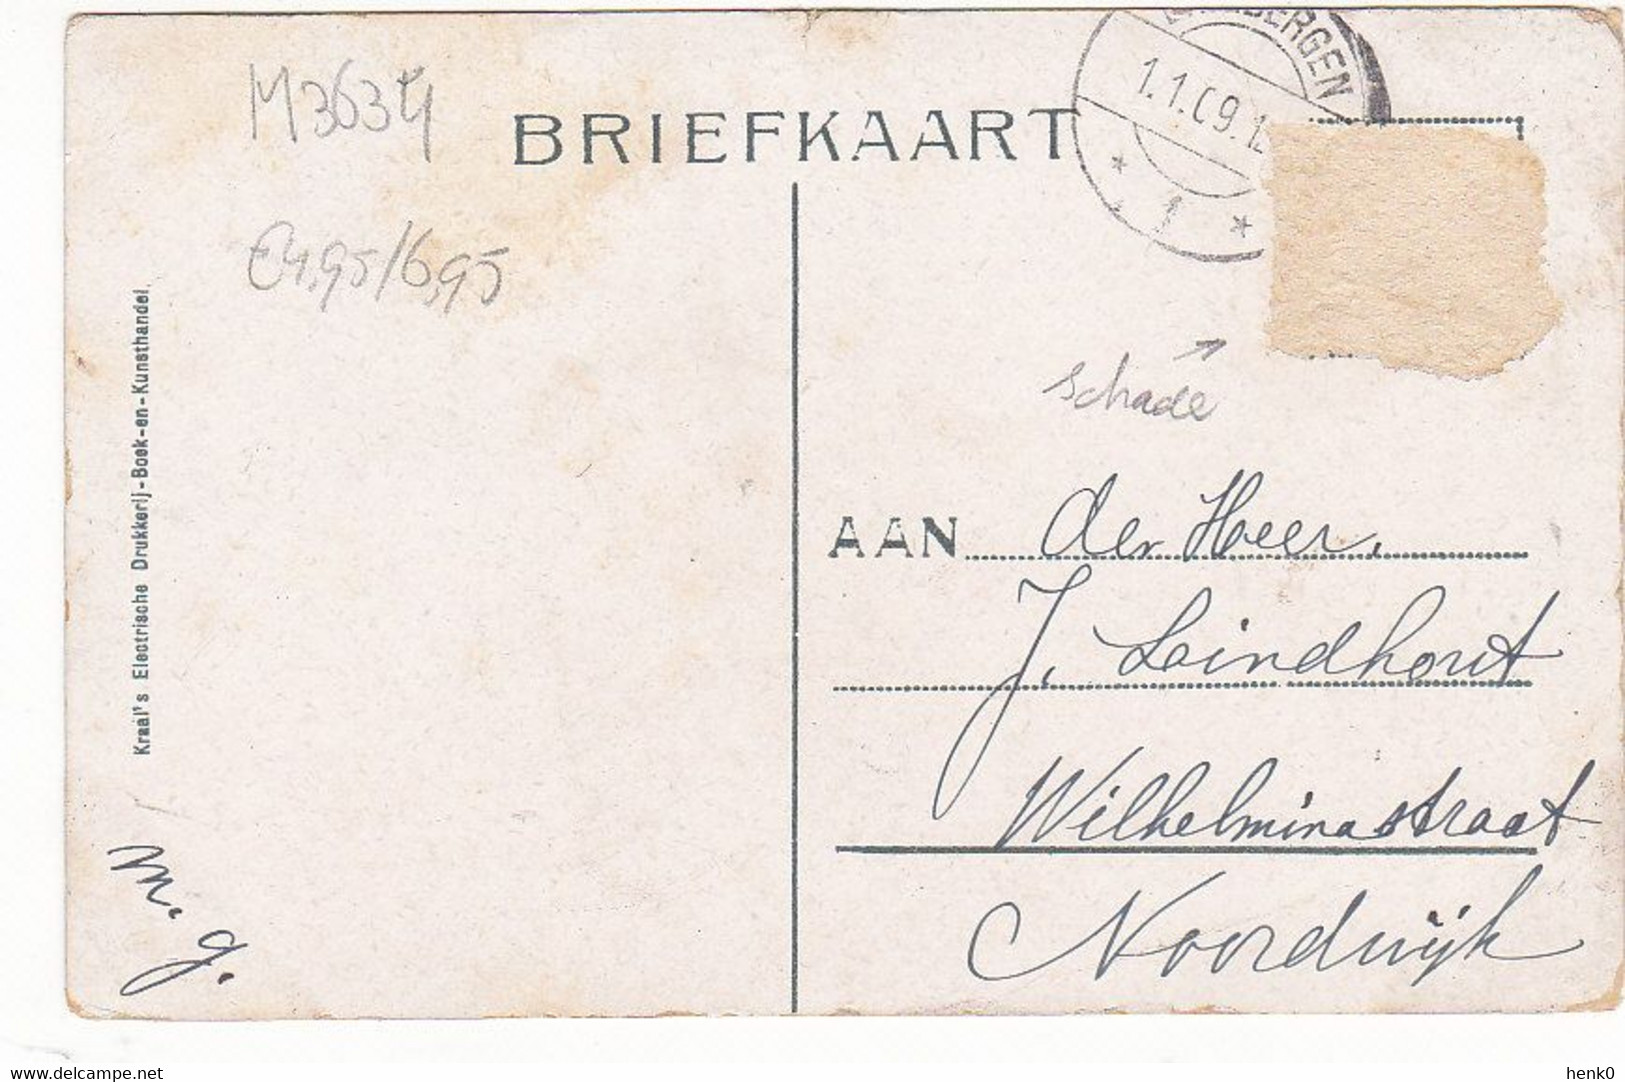 BRIEFKAART
BERGEN
1.1.09.12
* 1 *
€4,95/6,95
schade
AAN der Heer.
J. Leindhout
Wilhelminastraat
Noordwijk
Kraal's Electrische Drukkerij-Boek-en-Kunsthandel
M. g.
www.delcampe.net
henk0